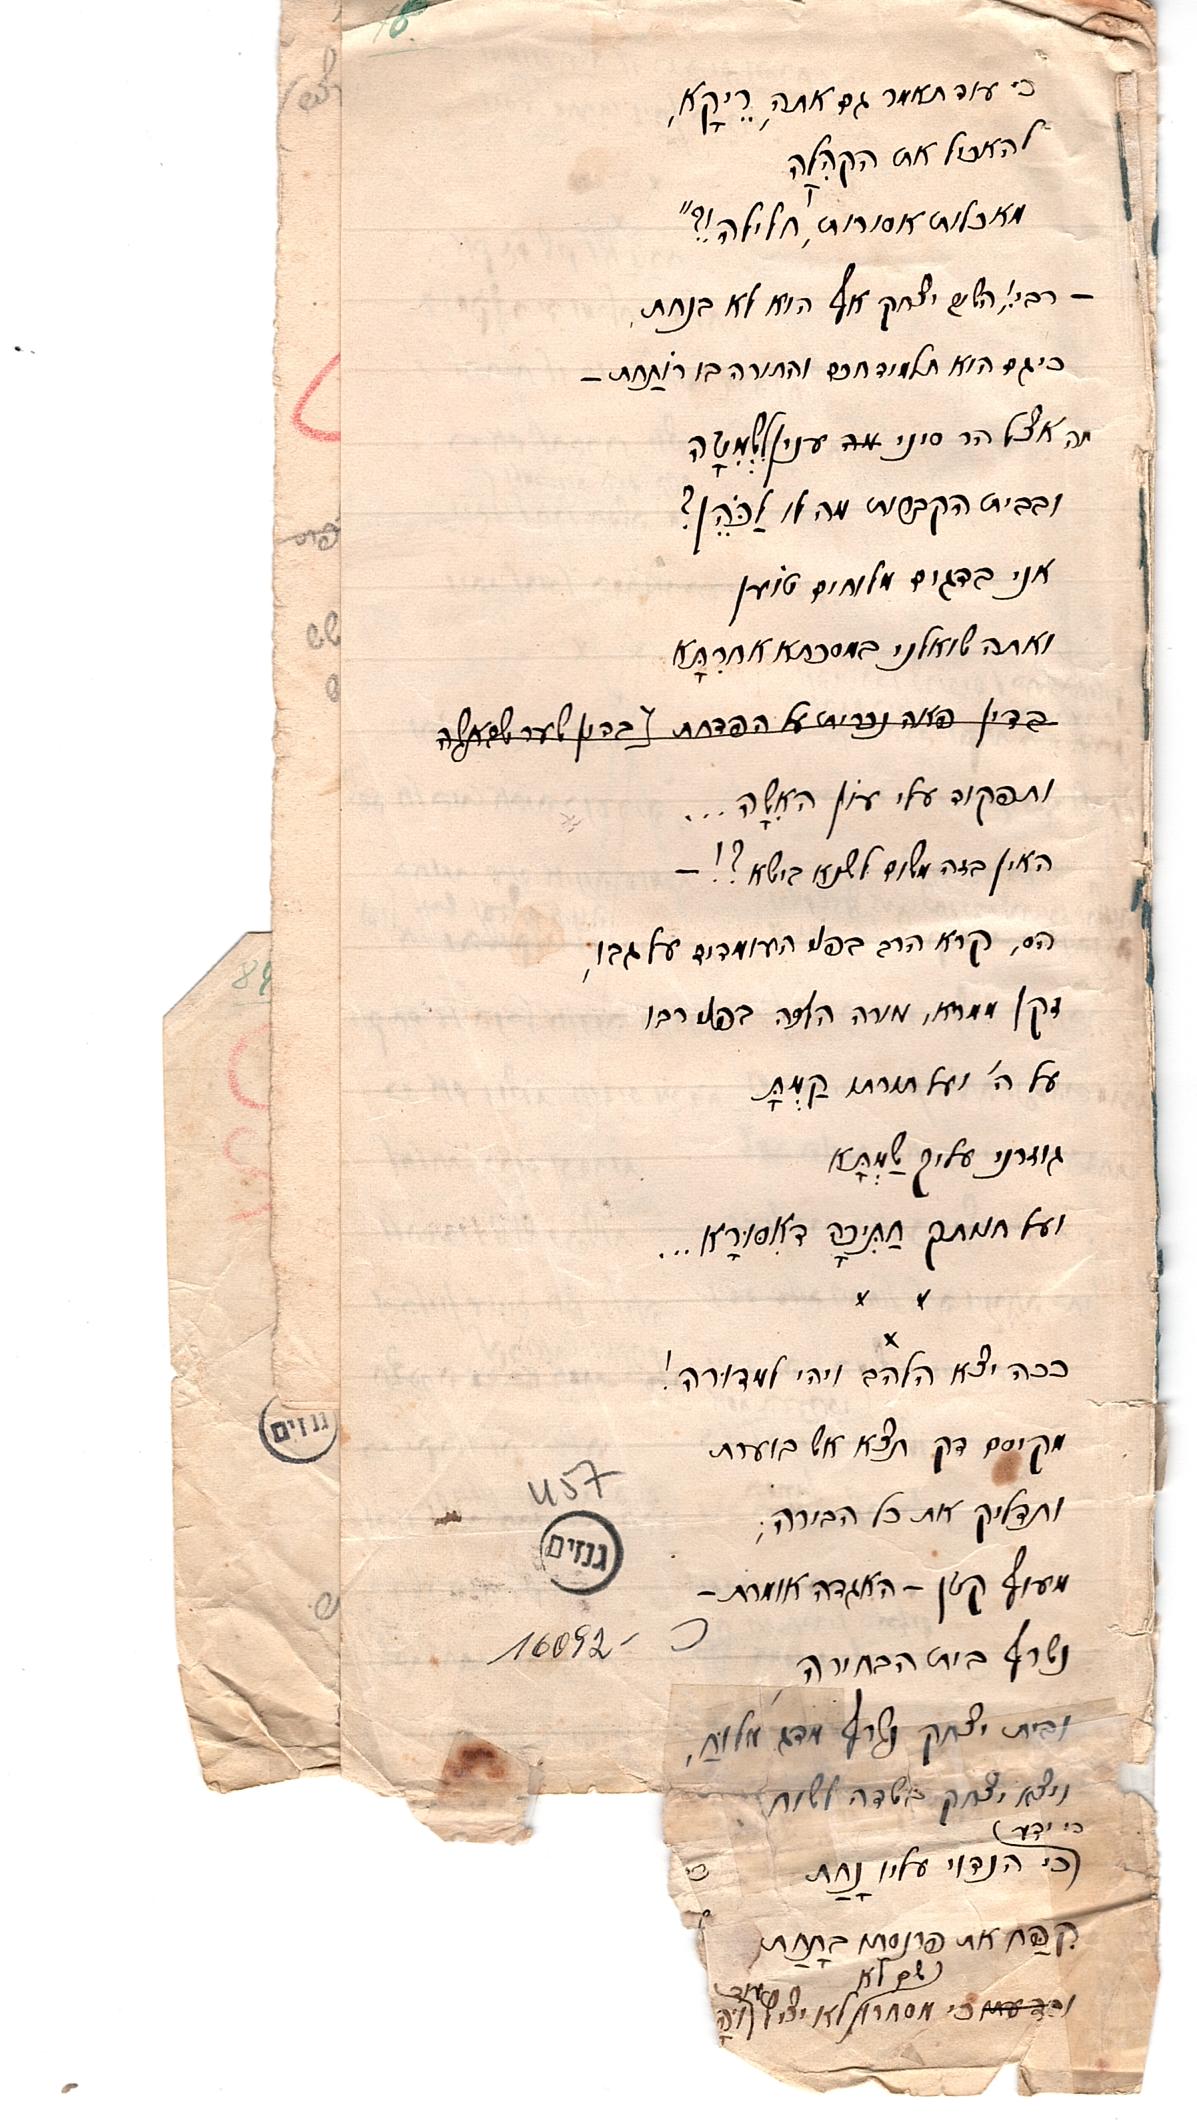 כי עוד תאמר גם אתה, רֵיקָא,
להאכיל את הקהִלָּה
מאכלות אסורות, חלילה!?"
– רבי! השיב יצחק אף הוא לא בנחת,
כי גם הוא תלמיד חכם והתורה בו רוֹתַחת –
מה אצל הר סיני מה ענין לִשְׁמִטָּה
ובבית הקברות מה לו לַכֹּהֵן?
אני בדגים מלוחים טוֹען
ואתה שואלני במסכתא אחרִתָּא
בדין פאה נכרית על הפדחת
ותפקוד עלי עוֹן האִשָּׁה...
האין בזה משום לשנא בישא?! –
הס, קרא הרב בפני העומדים על גבו,
זקן ממרא, מורה הלכה בפני רבו
על ה' ועל תורתו קַמְתָּ
גוזרני עליך שַׁמְתָּא
ועל חנותך חַתִּיכָה דְאִסּוּרָא...
x x
x
ככה יצא הלהב ויהי למדורה!
מקיסם דק תצא אש בוערת
ותדליק את כל הבירה;
מעוף קטן – האגדה אומרת –
נשרף בית הבחירה
ובית יצחק נשרף מדג מלוּחַ,
ויצא יצחק בשדה לשוח
כי ידע
כי הנדוי עליו נָחַת
קִפַּח את פרנסתו בתַחַת
ושם לא
כי מסחרו לא יציל עוד
גנזים
457
גנזים
16092-